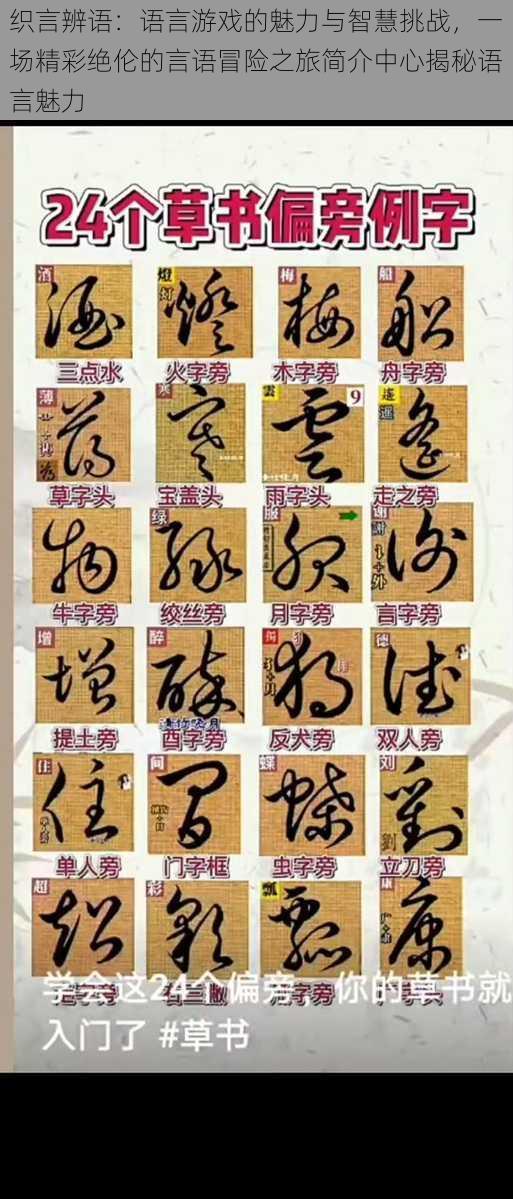 织言辨语：语言游戏的魅力与智慧挑战，一
场精彩绝伦的言语冒险之旅简介中心揭秘语
言魅力
24个草书偏旁例字
酒 燈 灯 梅 船
三点水 火字旁 木字旁 舟字旁
薄 寒 雲 9 遥 遥
草字头 宝盖头 雨字头 走之旁
物 绿 服 谢 謝 外
牛字旁 绞丝旁 月字旁 言字旁
增 醉 独 德
提土旁 酉字旁 反犬旁 双人旁
住 间 蝶 刘 劉
单人旁 门字框 虫字旁 立刀旁
超 彩 瓢 康
学会这24个偏旁，你的草书就
入门了 #草书